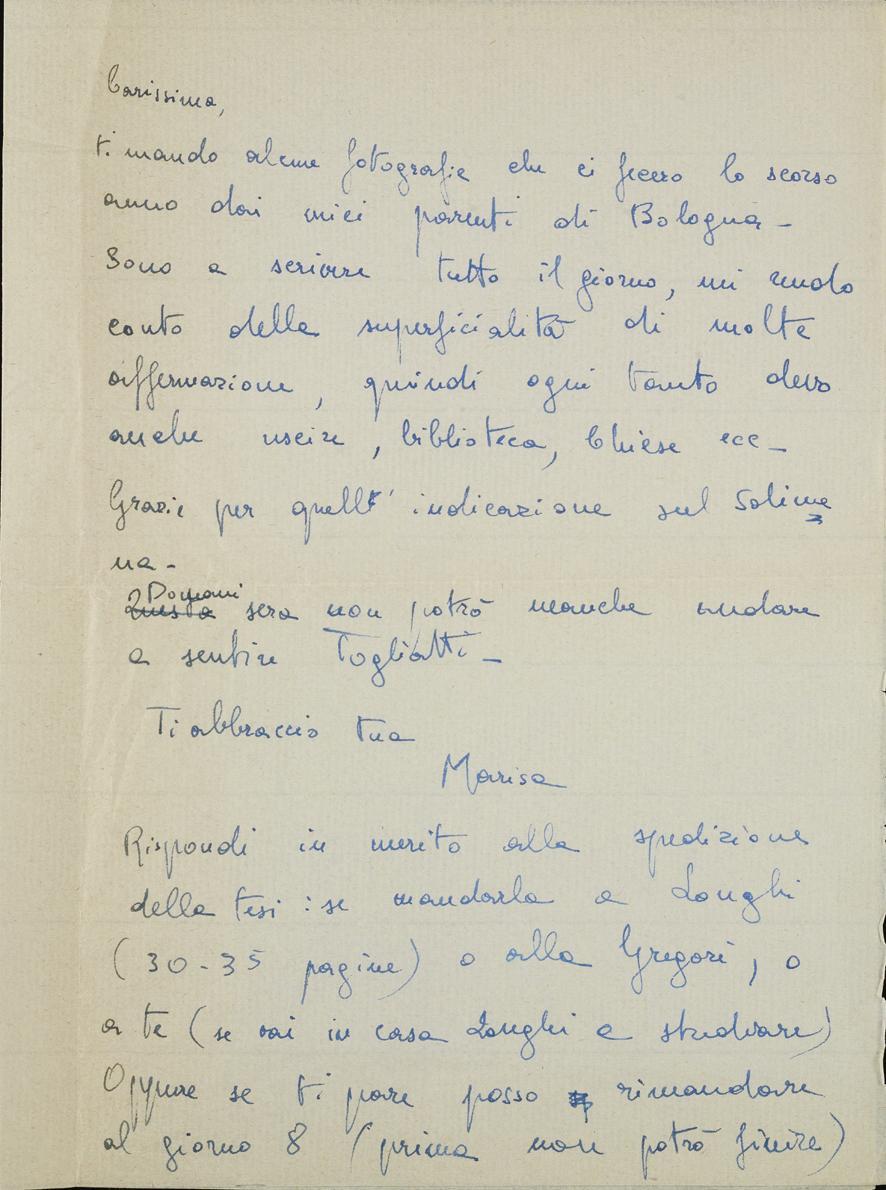 Carissima,
ti mando alcune fotografie che ci fecero lo scorso
anno dai miei parenti di Bologna -
Sono a scrivere tutto il giorno, mi rendo
conto della superficialità di molte
affermazione, quindi ogni tanto devo
anche uscire, biblioteca, Chiese ecc -
Grazie per quell' indicazione sul Solime
na -
Questa Domani sera non potrò neanche andare
a sentire Togliatti -
Ti abbraccio tua
Marisa
Rispondi in merito alla spedizione
della tesi : se mandarla a Longhi
(30-35 pagine) o alla Gregori, o
a te (se vai in casa Longhi a studiare)
Oppure se ti pare posso rimandare
al giorno 8 (prima non potrò finire)